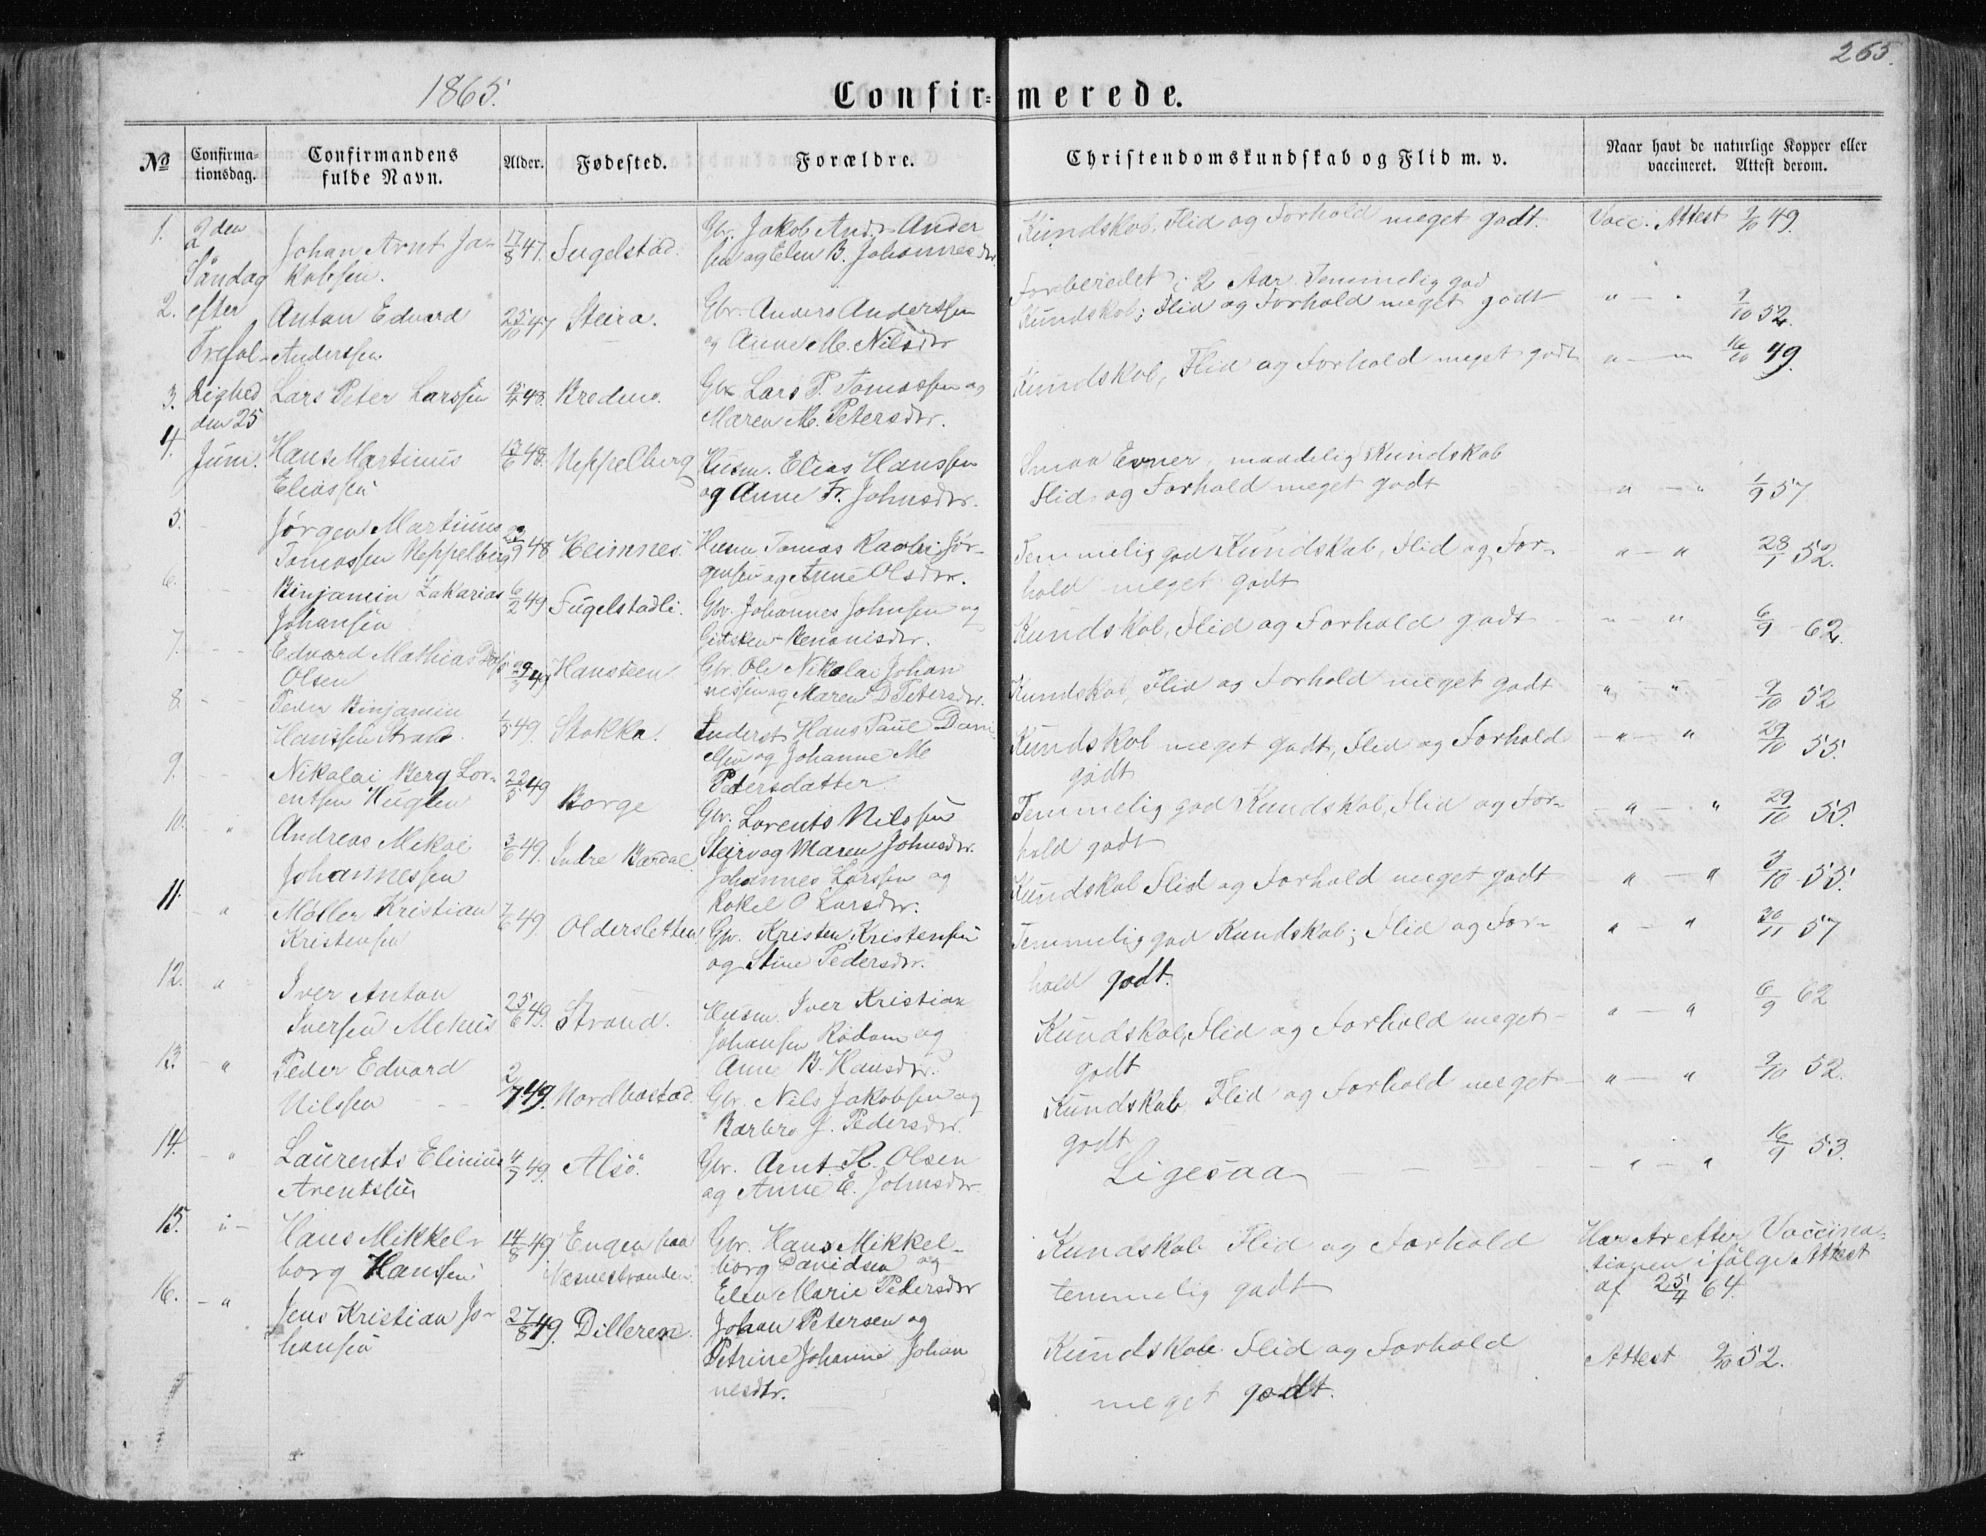 265.
1865.
Confir=merede.
No
Confirma-
tionsdag.
Confirmandens
fulde Navn.
Alder.
Fødested.
Forældre.
Christendomskundskab og Flid m. v.
Naar havt de naturlige Kopper eller
vaccineret. Attest derom.
2den
Søndag
efter
Trefol-
dighed
den 25
Juni.
1. Johan Arnt Ja-
kobsen. 17/8 47. Fugelstad. Gbr. Jakob And. Ander
sen og Elen B. Johannesdtr. Kundskab, Flid og Forhold meget godt. Vacc. Attest 9/10 49.
2. Anton Edvard
Anderssen 25/10 47 Steira. Gbr. Anders Anderssen
og Anne M. Nilsdtr Forberedet i 2 Aar. Temmelig god
Kundskab; Flid og Forhold meget godt " - " 9/10 52.
3. Lars Peter Larssen 48. Bredvi. Gbr Lars P. Tomassen og
Maren M. Petersdtr. Kundskab, Flid og Forhold meget godt " - " 16/10 49.
4. Hans Martinus
Eliassen 17/6 48. Neppelberg Husm. Elias Hanssen
og Anne Fr. Johnsdtr. Smaa Evner, maadelig Kundskab
Flid og Forhold meget godt - " - " 1/9 57
5. Jørgen Martinus
Tomassen Neppelberg 23/9 48 Heimnes. Husm Tomas Jør-
gensen og Anne Olsdtr. Temmelig god Kundskab, Flid og For-
hold meget godt " - " 28/1 52.
6. Binjamin Zakarias
Johansen 6/2 49 Fugelstadli. Gbr. Johannes Johnsen og
Kundskab, Flid og Forhold godt " - " 6/9 62.
7. Edvard Mathias
Olsen 49 Hansteen Gbr. Ole Nikolai Johan
nessen og Maren D Petersdtr. Kundskab, Flid og Forhold meget godt " - " 9/10 52
8. Peder Binjamin
Hanssen Strand 1/5 49. Stokka. Inderst Hans Paul Dani
elsen og Johanne M
Petersdatter. Kundskab meget godt, Flid og Forhold
godt - " - " 29/10 55.
9. Nikolai Berg Lor-
entsen Huglen 22/5 49 Borge Gbr. Lorents Nilssen
Steiro og Maren Johnsdtr. Temmelig god Kundskab, Flid og For-
hold godt - " - " 29/10 55.
10. " Andreas Mikal
Johannessen 3/6 49. Indre Bardal Johannes Larssen og
Rakel O Larsdtr. Kundskab Flid og Forhold meget godt " - " 3/10 55.
11. " Møller Kristian
Kristensen 7/6 49 Oldersletten Gbr. Kristen Kristensen
og Stine Pedersdtr. Temmelig god Kundskab; Flid og For-
hold godt. " - " 30/11 57
12. " Iver Anton
Iversen Mehus 25/6 49. Strand. Husm. Iver Kristian
Johansen Rødom og
Anne B. Hansdtr. Kundskab, Flid og Forhold meget
godt " - " 6/9 62
13. - " Peder Edvard
Nilssen 2/7 49. Nordhostad Gbr. Nils Jakobsen og
Barbro J. Pedersdtr. Kundskab, Flid og Forhold meget
godt " - " 9/10 52.
14. " Laurents Elinius
Arentsen 4/7 49. Alsø. Gbr. Arnt K. Olsen
og Anne E. Johnsdtr. Ligesaa - " - " 16/9 53.
15. " - Hans Mikkel-
borg Hanssen 14/8 49 Engen paa
Næsnestranden. Gbr. Hans Mikkel-
borg Davidsen og
Elen Marie Pedersdtr Kundskab Flid og Forhold
temmelig godt Har Ar efter Vaccina-
tionen ifølge Attest
af 25/4 64.
16. - " Jens Kristian Jo-
hansen 27/8 49. Dilleren. Johan Petersen og
Petrine Johanne Johan
nesdtr. Kundskab Flid og Forhold
meget godt. Attest 9/10 52.